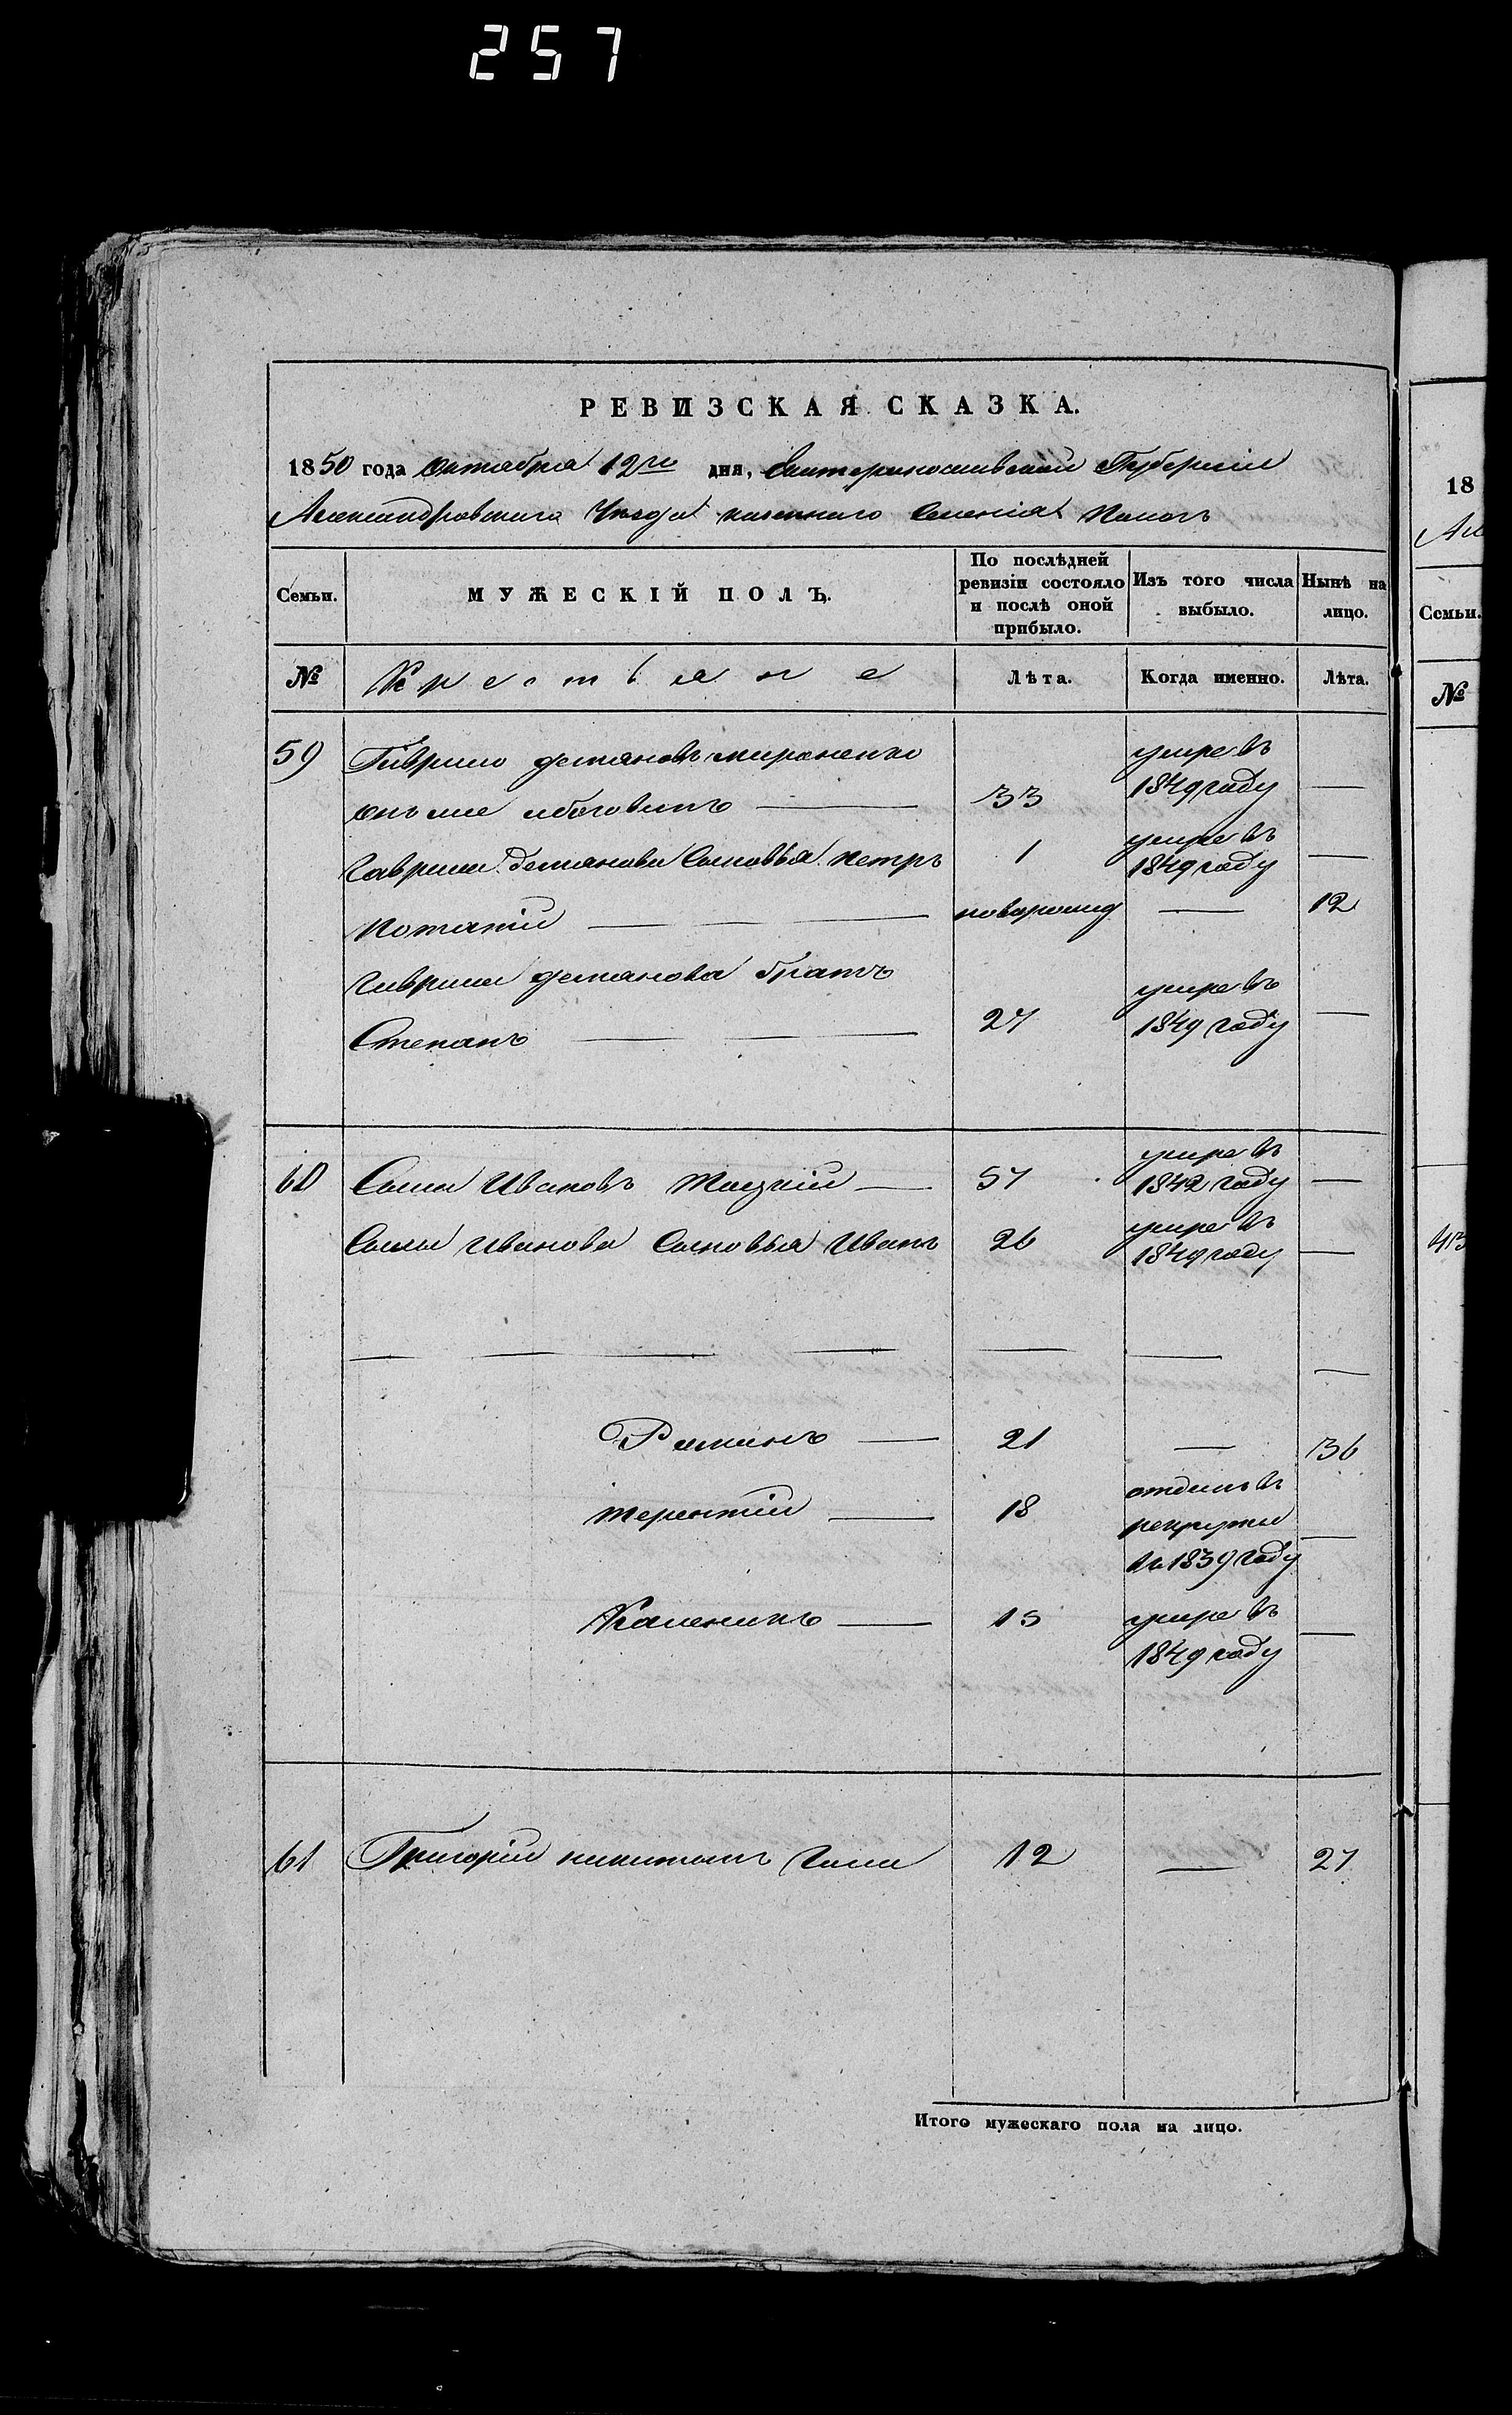 257
РЕВИЗСКАЯ СКАЗКА.
1850 года Октября 12го дня, Екатеринославской Губернии
Александровского Уезда казенного Селения Покогъ
Семьи. МУЖЕСКІЙ ПОЛЪ. По послѣдней ревизіи состояло и послѣ оной прибыло. Изъ того числа выбыло. Нынѣ на лицо.
№ Крестьяне Лѣта. Когда именно. Лѣта.
59 Гаврило демяновъ мироненко умре въ
онъ же 33 1849 году —
Гаврила Демянова Сыновья петръ 1 умре въ 1849 году —
Потапій — — новорожд — 12
Гаврила демянова братъ
Степанъ — — 27 умре въ 1849 году —
60 Савва Ивановъ — 57 умре въ 1842 году —
Савы Иванова Сыновья Иванъ 26 умре въ 1849 году —
— — — — — — — —
Романъ — 21 — 36
терентій — 18 отданъ въ рекруты въ 1839 году —
Каленикъ — 15 умре въ 1849 году —
61 Григорій никитинъ 12 — 27
Итого мужескаго пола на лицо.
18
Семьи.
№